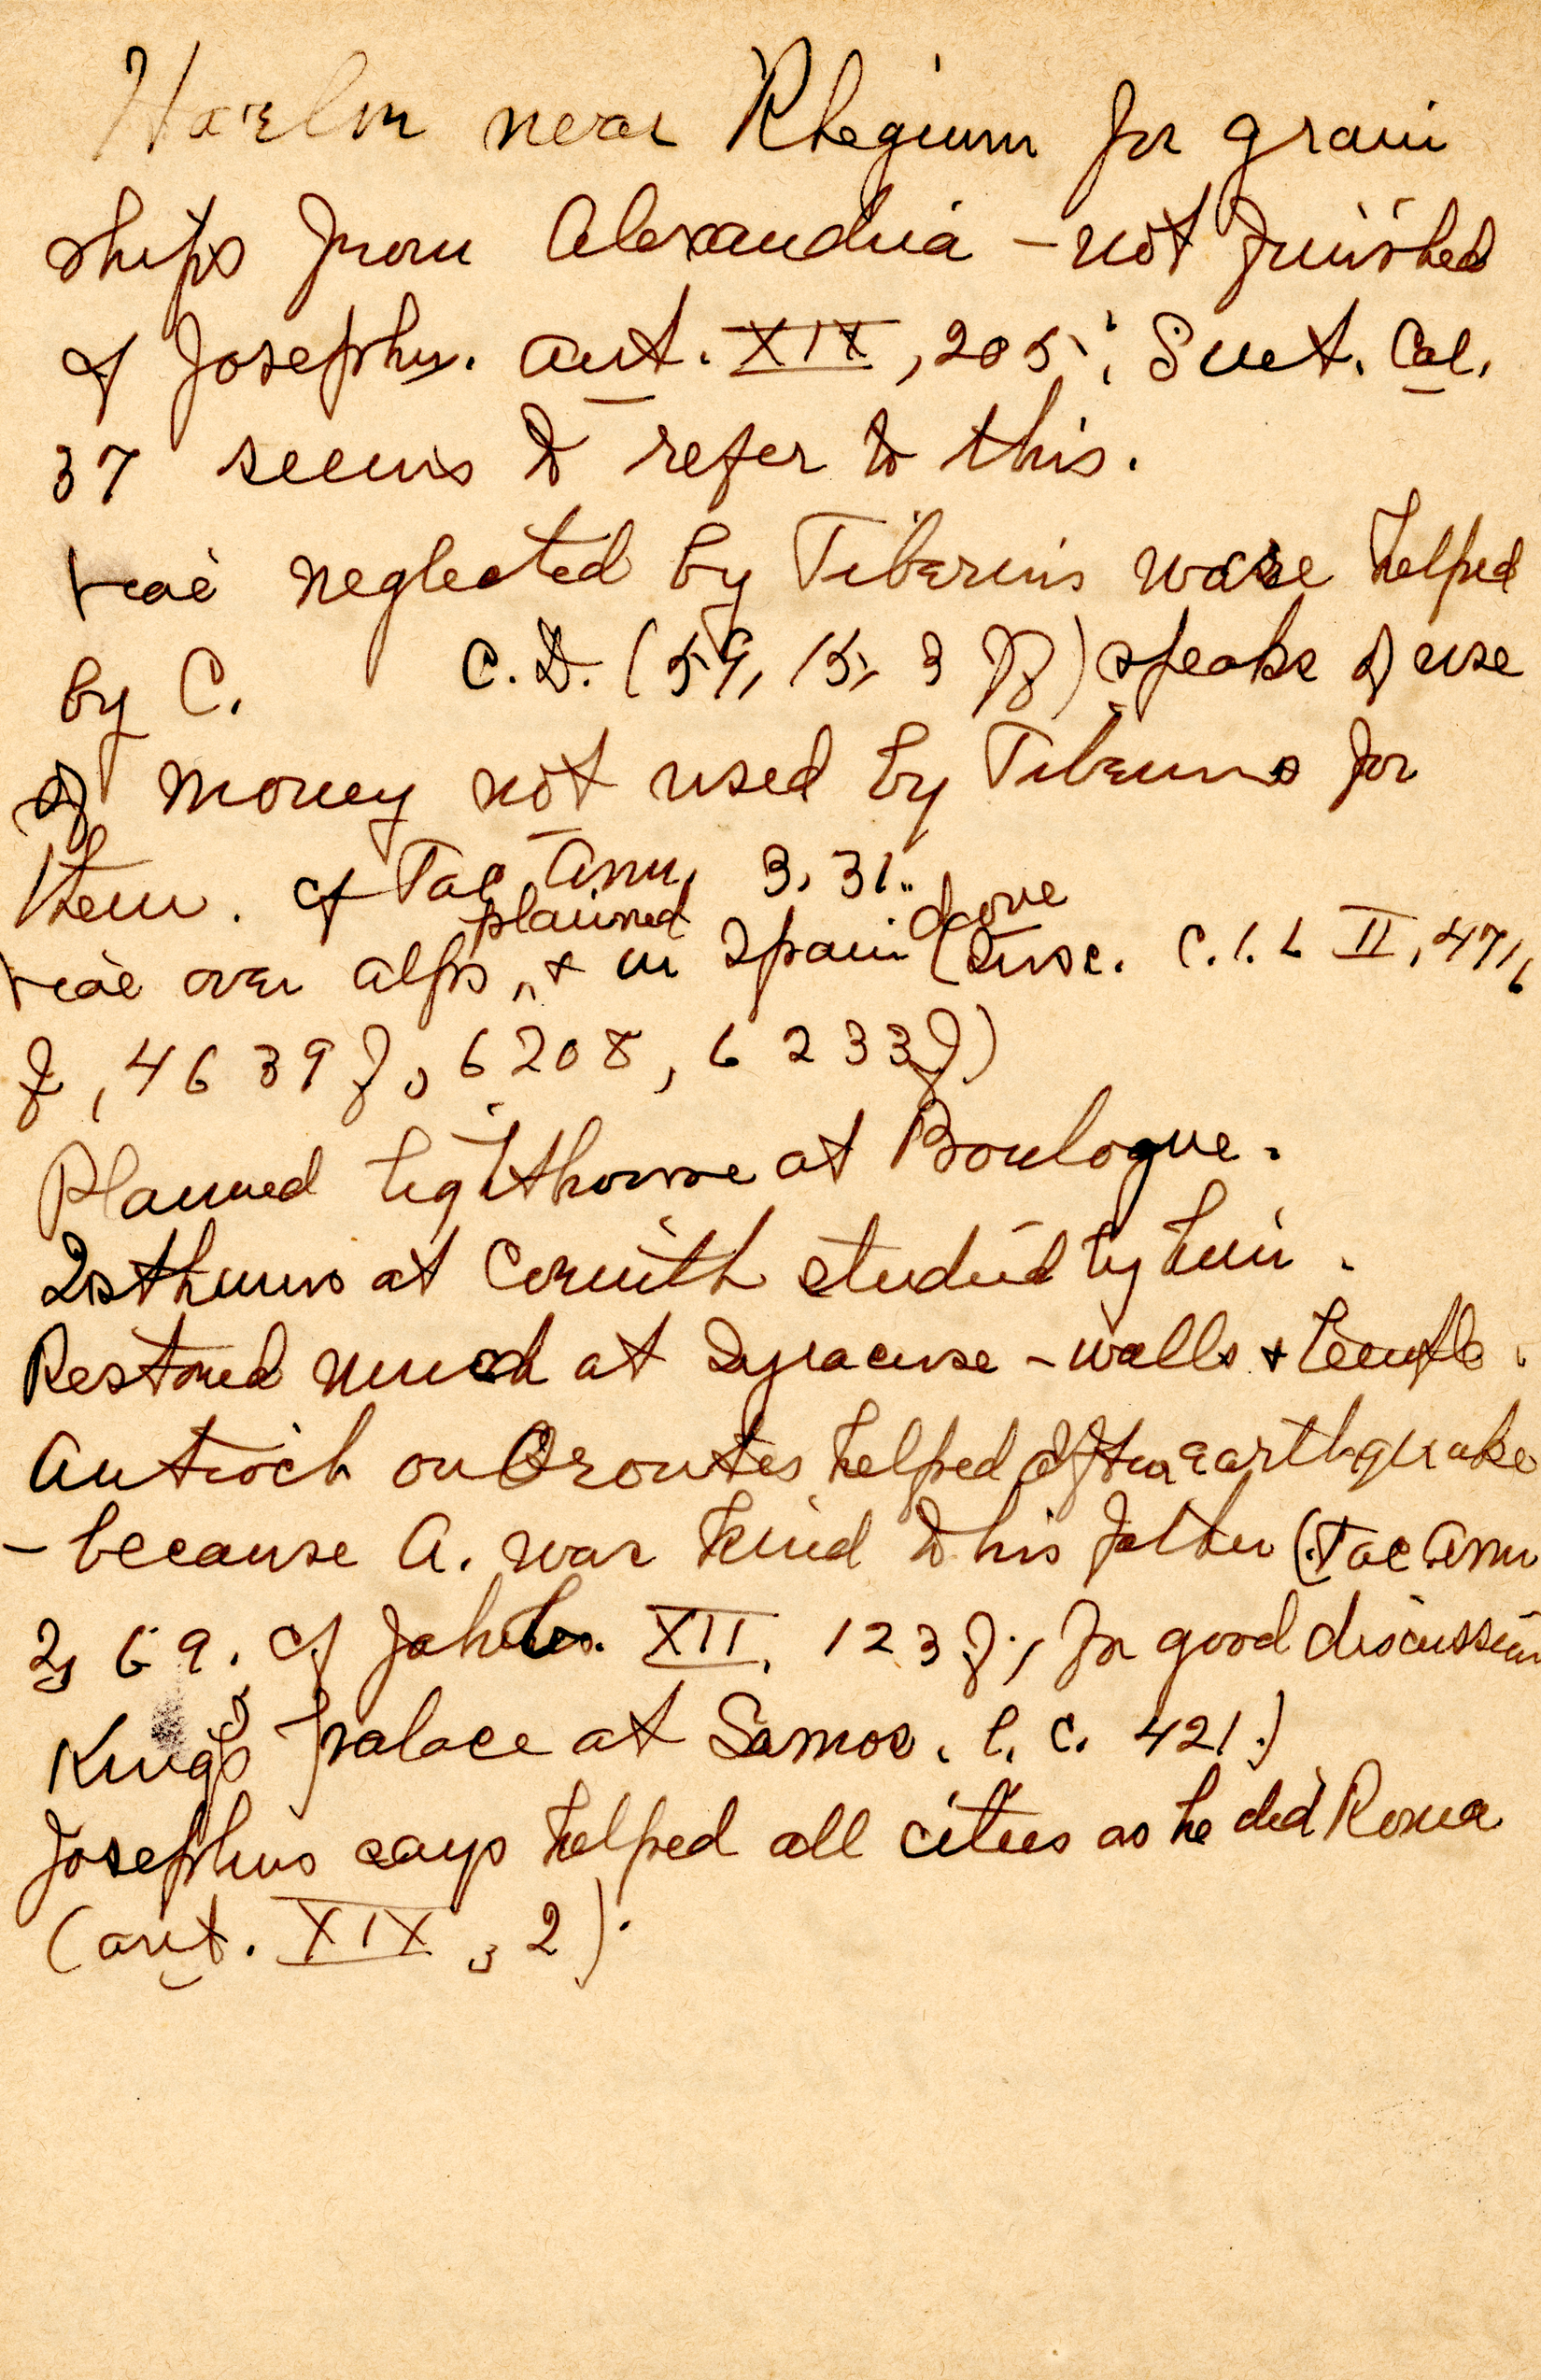 Harbor near Rhegium for grain
ships from Alexandria - not finished
cf Josephus. Ant. XIX, 205; Suet. Cal.
37 seems to refer to this.
viae neglected by Tiberius were helped
by C. C.D. (59, 15, 3 ff) speaks of use
of money not used by Tiberius for
them. cf Tac Ann. 3, 31.
viae over alps planned, & in Spain done (Insc. C.I.L II, 4716
f, 4639 f, 6208, 6233 f)
Planned lighthouse at Boulogne.
Isthmus at Corinth studied by him.
Restored much at Syracuse - walls & temple.
Antioch on Orontes helped after earthquake
- because A. was kind to his father (Tac Ann
2, 69. cf Jahrb. XII, 123 f; for good discussion
King's palace at Samos. l. c. 421.)
Josephus says helped all cities as he did Rome
(Ant. XIX, 2).